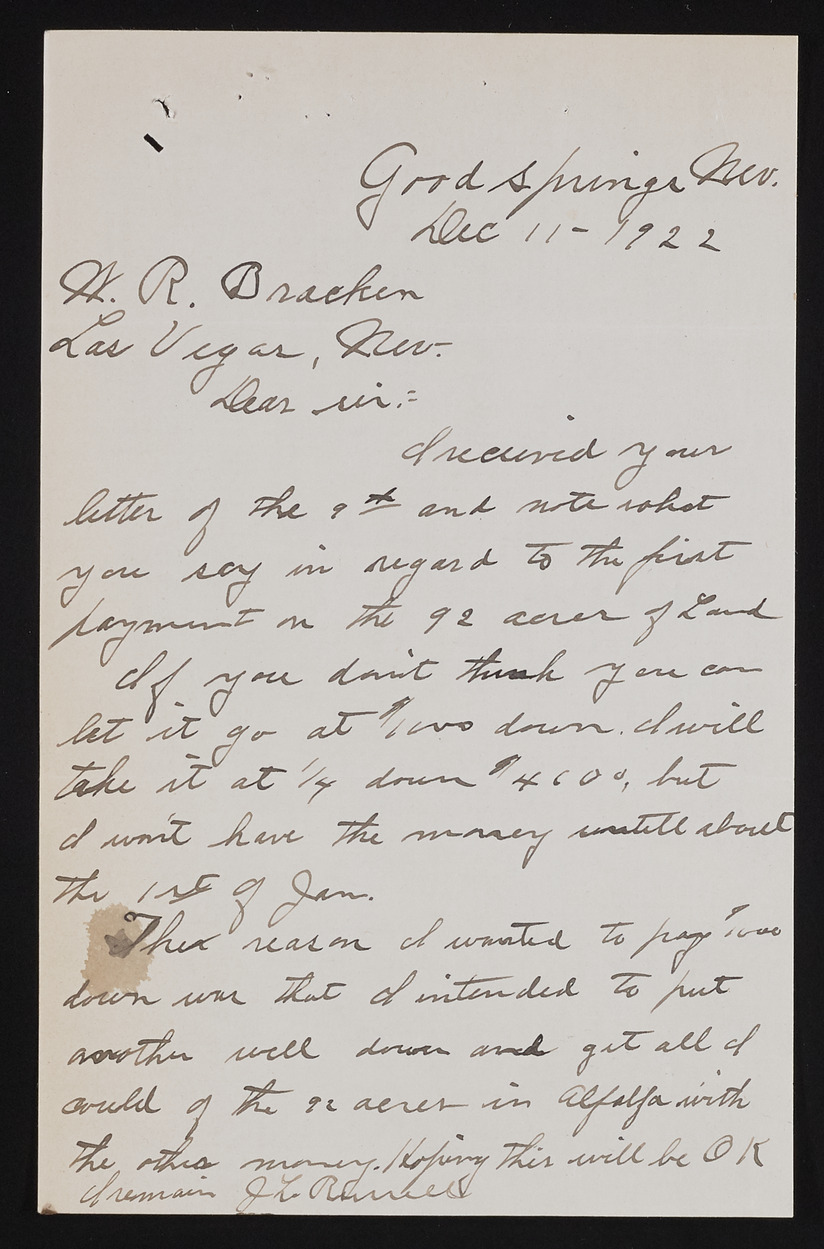 Good Springs Nev.
Dec 11 - 1922
W. R. Bracken
Las Vegas, Nev.
Dear sir:-
I received your
letter of the 9th and note what
you say in regard to the first
payment on the 92 acres of Land
If you don't think you can
let it go at $1000 down. I will
take it at 1/4 down $4600, but
I won't have the money untill about
the 1st of Jan.
The reason I wanted to pay $1000
down was that I intended to put
another well down and get all I
could of the 92 acres in Alfalfa with
the other money. Hoping this will be O K
I remain J L Russell